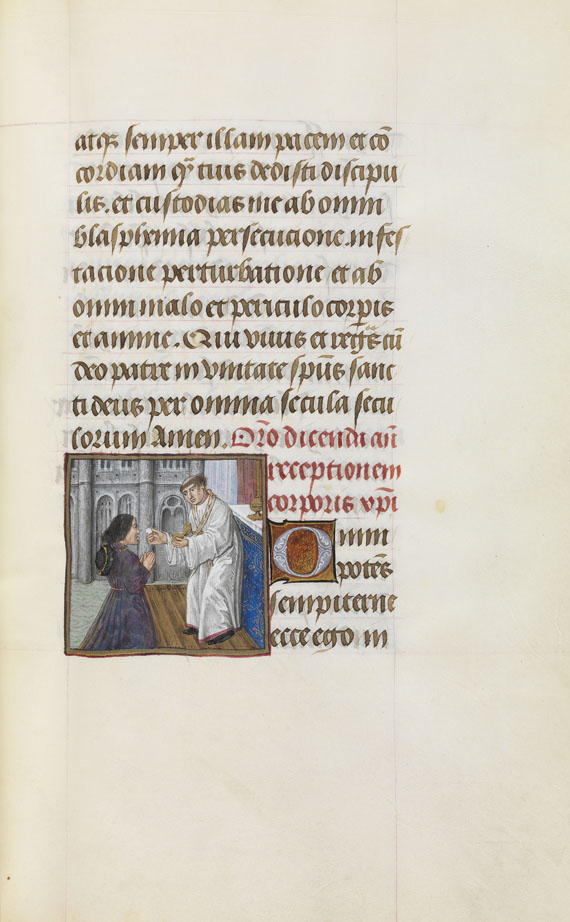 atqꝫ semper illam pacem et cō
cordiam qȳ tuis dedisti discipu
lis. et custodias me ab omni
blasphemia persecucione. infes
tacione perturbatione et ab
omni malo et periculo corꝑis
et anime. Qui viuis et regͣs cū
deo patre in vnitate spūs sanc
ti deus per omnia secula secu
lorum Amen. Orō dicenda añ
recceptionem
corporis xpī
Omni
potēs
sempiterne
ecce ego in